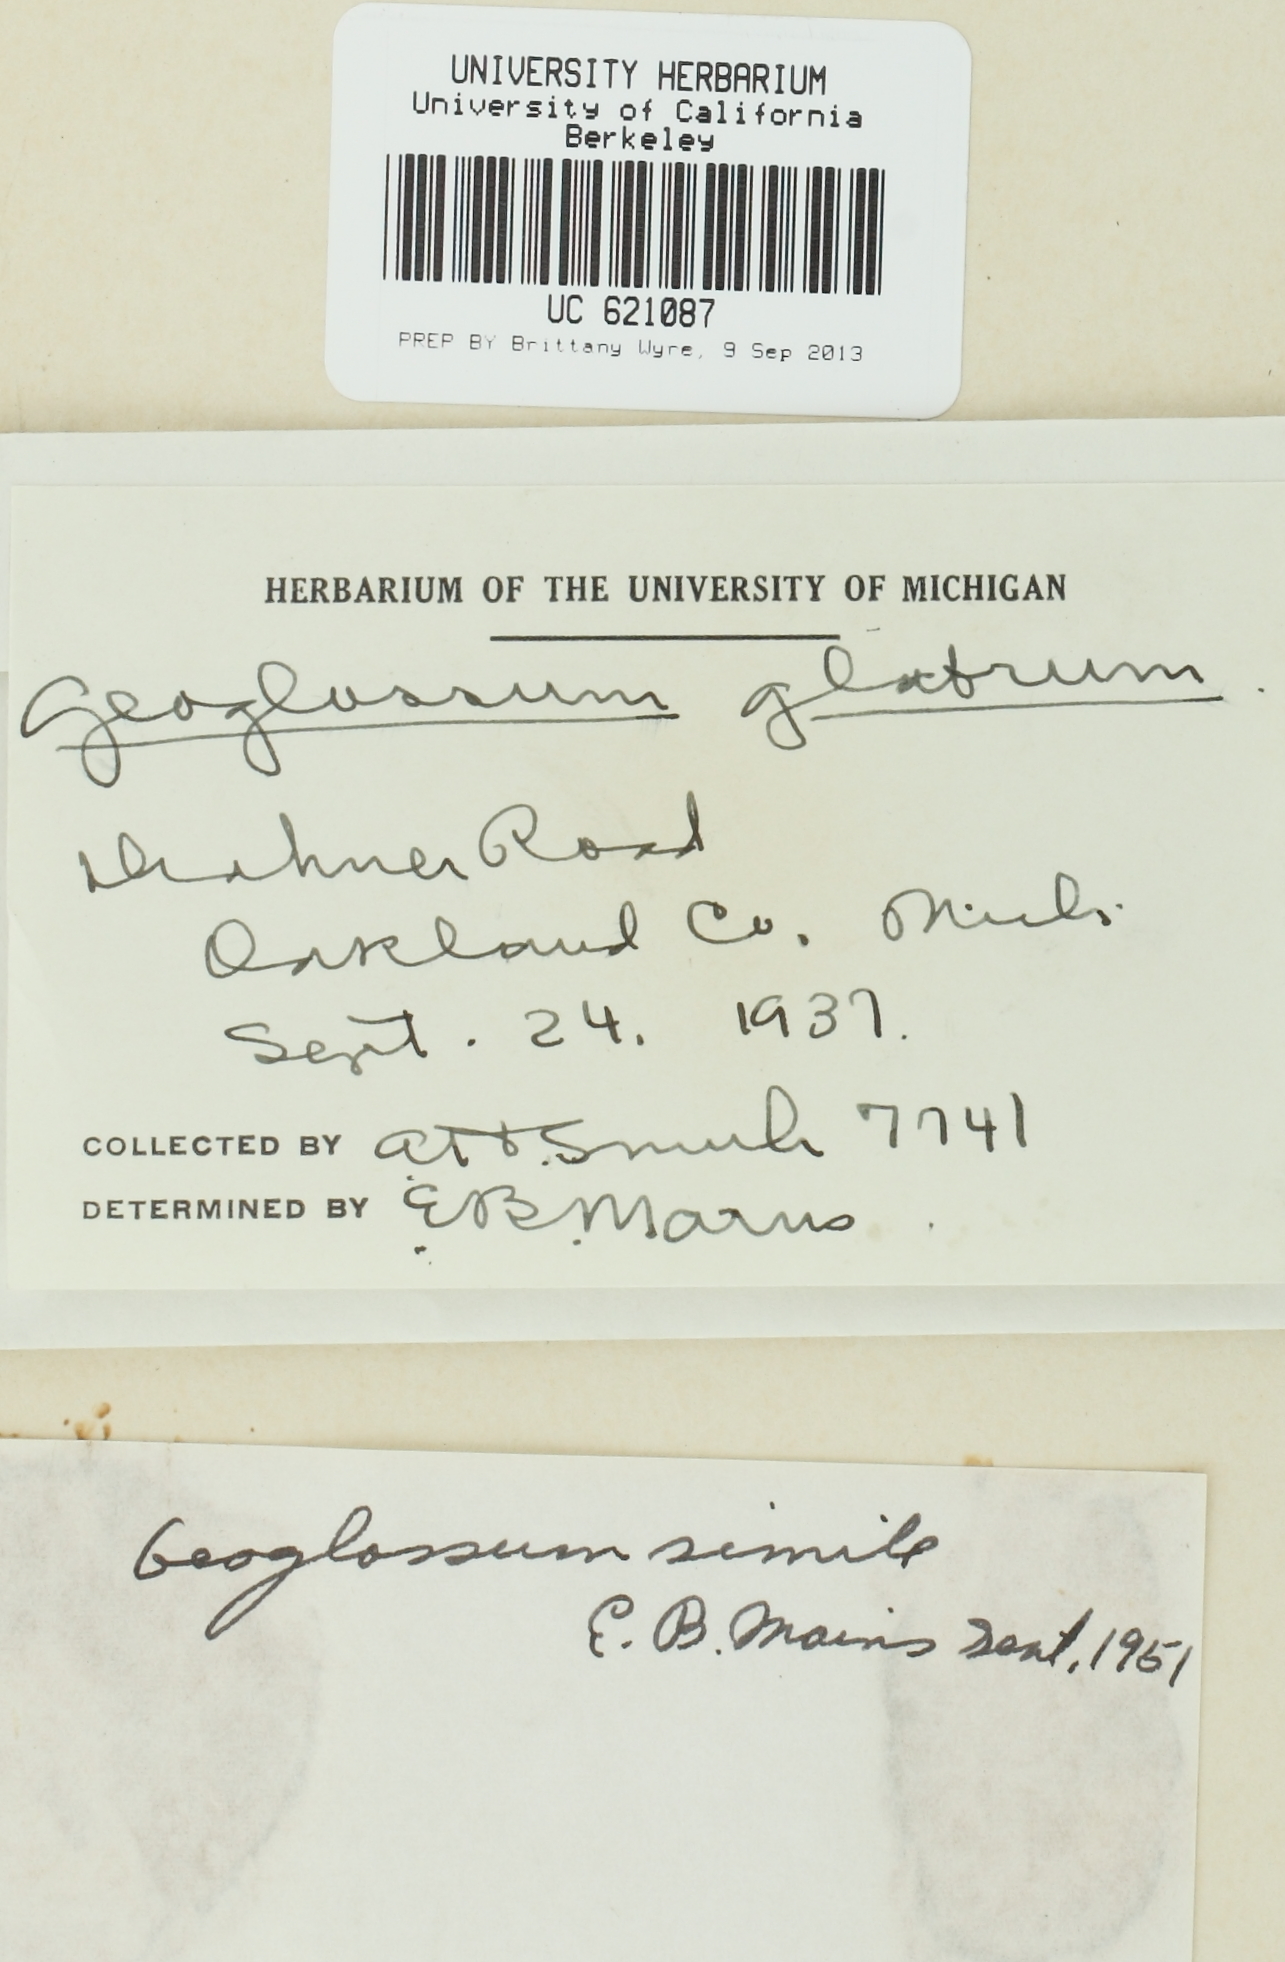 UNIVERSITY HERBARIUM
University of California
Berkeley
UC 621087
PREP BY Brittany Wyre, 9 Sep 2013
HERBARIUM OF THE UNIVERSITY OF MICHIGAN
Geoglossum glabrum.
Road
Oakland Co. Mich.
Sept. 24. 1937.
COLLECTED BY A.H. Smith 7741
DETERMINED BY E.B. Mains.
Geoglossum simile
E. B. Mains Sept. 1951